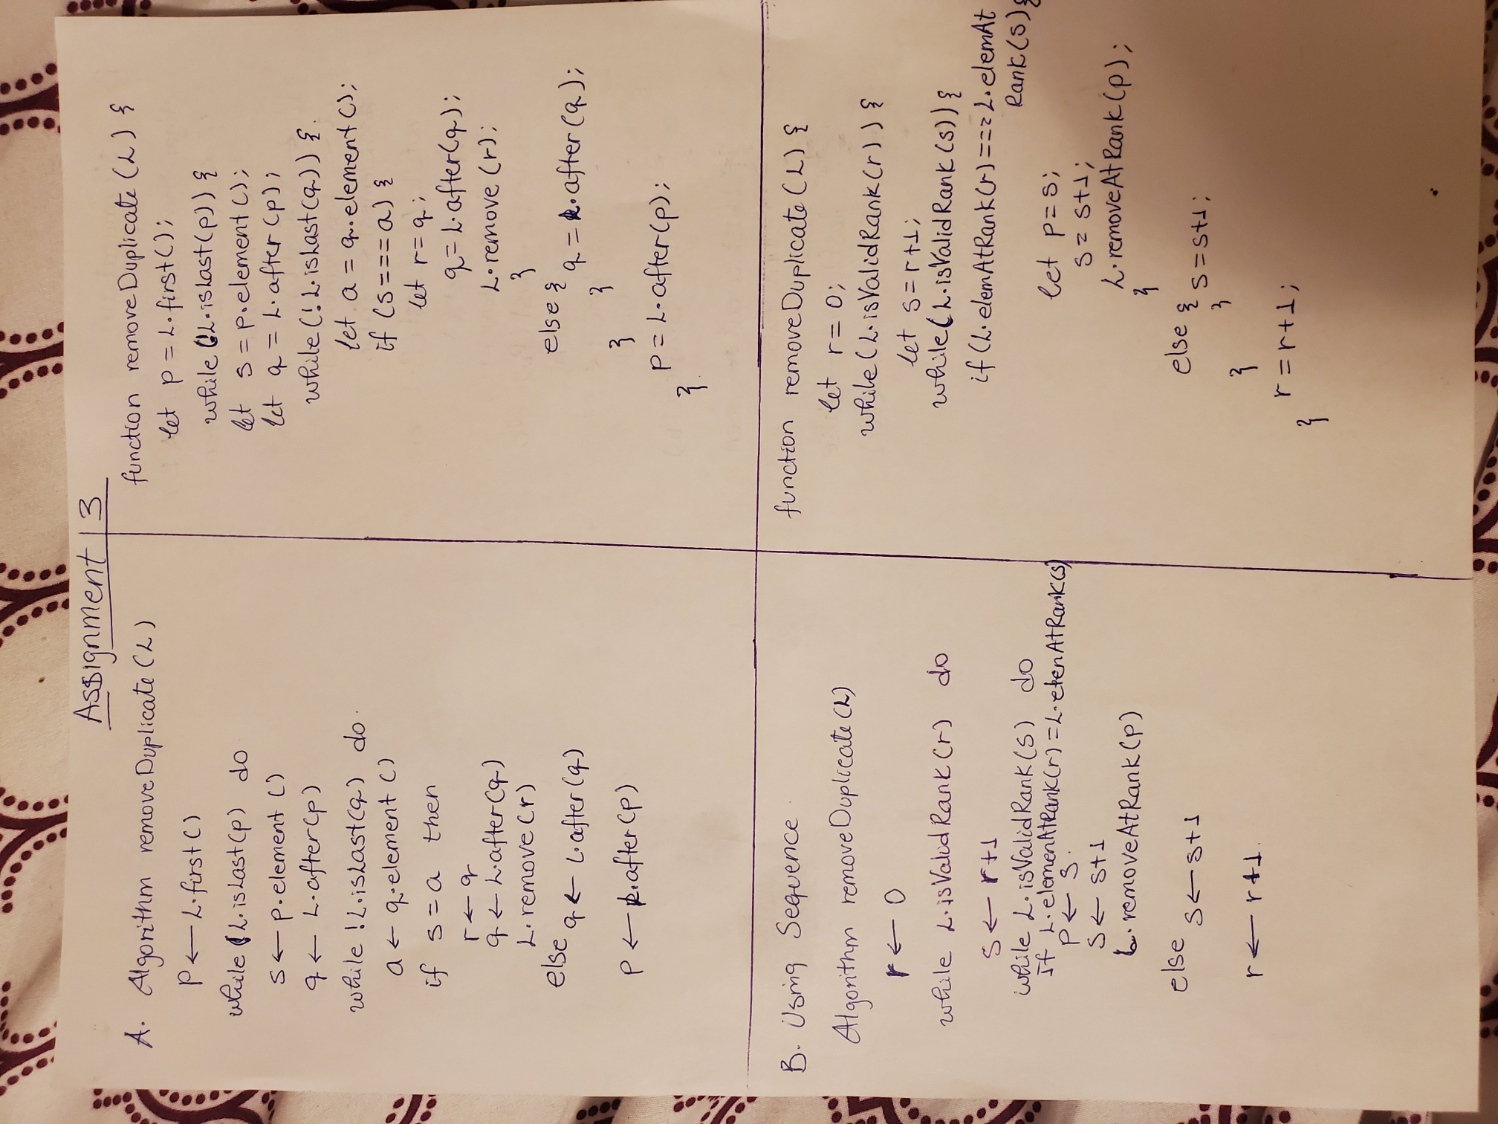 Assignment 3
A. Algorithm removeDuplicate(L)
p ← L.first()
while !L.isLast(p) do
s ← p.element()
q ← L.after(p)
while !L.isLast(q) do
a ← q.element()
if s = a then
r ← q
q ← L.after(q)
L.remove(r)
else
q ← L.after(q)
p ← L.after(p)
function removeDuplicate(L) {
let p = L.first();
while (!L.isLast(p)) {
let s = p.element();
let q = L.after(p);
while(!L.isLast(q)) {
let a = q.element();
if (s===a) {
let r=q;
q=L.after(q);
L.remove(r);
}
else {
q = L.after(q);
}
}
p = L.after(p);
}
B. Using Sequence
Algorithm removeDuplicate(L)
r ← 0
while L.isValidRank(r) do
s ← r+1
while L.isValidRank(s) do
If L.elemenAtRank(r)=L.elenAtRank(s)
p ← s
s ← s+1
L.removeAtRank(p)
else
s ← s+1
r ← r+1
function removeDuplicate(L) {
let r = 0;
while(L.isValidRank(r)) {
let s=r+1;
while(L.isValidRank(s)){
if (L.elemAtRank(r)===L.elemAt
Rank(s){
let p=s;
s= s+1;
L.removeAtRank(p);
}
else {
s=s+1;
}
}
r=r+1;
}